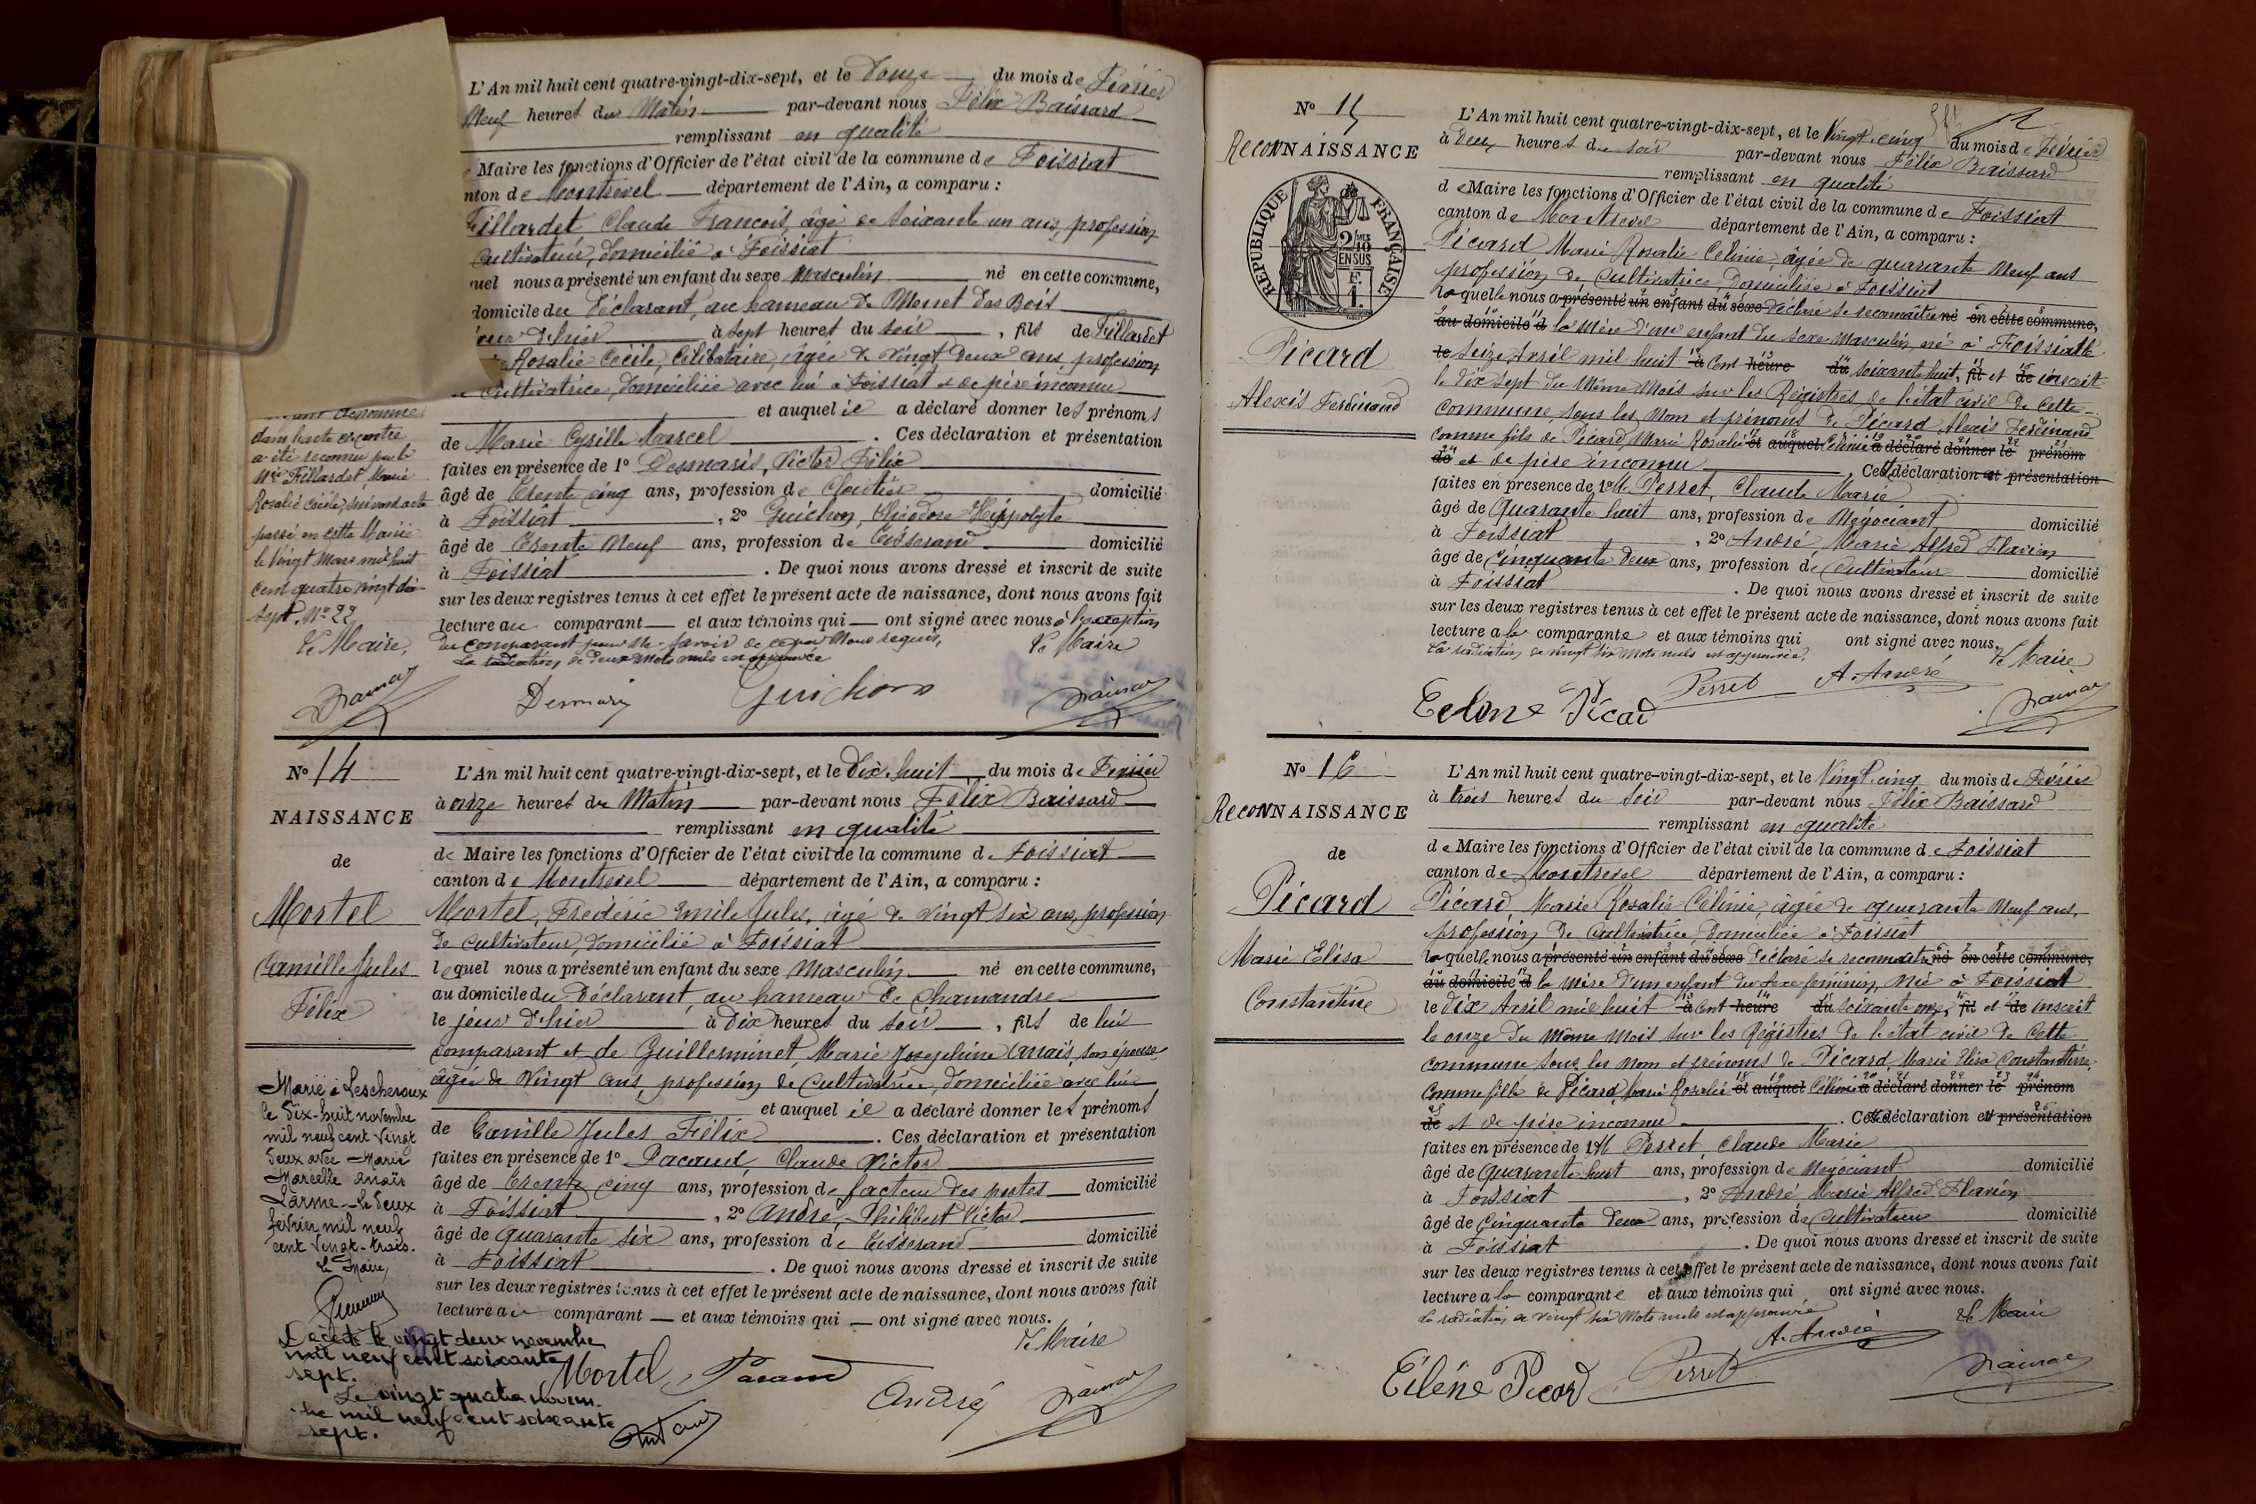 L'An mil huit cent quatre-vingt-dix-sept, et le Douze du mois de Février
Neuf heures du Matin par-devant nous Félix Baissard
remplissant en qualité
Maire les fonctions d'Officier de l'état civil de la commune de Foissiat
nton de Montrevel département de l'Ain, a comparu :
Fillardet Claude François, âgé de soixante un ans, profession
Cultivateur, domicilié à Foissiat
uel nous a présenté un enfant du sexe Masculin né en cette commune,
domicile du Déclarant, au hameau de Monet des Bois
d'hier à sept heures du soir, fils de Fillardet
Rosalie Cécile, Célibataire, âgée de vingt deux ans, profession
Cultivatrice, domiciliée avec lui à Foissiat et de père inconnu
et auquel il a déclaré donner les prénoms
de Marie Cyrille Marcel. Ces déclaration et présentation
faites en présence de 1º Desmaris, Victor Félix
âgé de Trente cinq ans, profession de Cloutier domicilié
à Foissiat, 2º Guichon, Théodore Hippolyte
âgé de Trente Neuf ans, profession de Tisserand domicilié
à Foissiat. De quoi nous avons dressé et inscrit de suite
sur les deux registres tenus à cet effet le présent acte de naissance, dont nous avons fait
lecture au comparant et aux témoins qui ont signé avec nous à l'exception
du comparant pour ne savoir de ce par Nous requis,
La radiation de deux mots nuls est approuvée
Le Maire
Desmaris Guichon
dénommé
dans l'acte ci-contre
a été reconnu par la
Mie Fillardet Marie
Rosalie Cécile, suivant acte
passé en cette Mairie
le Vingt Mars mil huit
cent quatre vingt dix
sept. Nº 22
Le Maire,
Nº 14
NAISSANCE
de
Mortel
Camille Jules
Félix
L'An mil huit cent quatre-vingt-dix-sept, et le Dix-huit du mois de Février
à onze heures du Matin par-devant nous Félix Baissard
remplissant en qualité
de Maire les fonctions d'Officier de l'état civil de la commune de Foissiat
canton de Montrevel département de l'Ain, a comparu :
Mortel, Frédéric Emile Jules, âgé de vingt six ans, profession
de Cultivateur, domicilié à Foissiat
lequel nous a présenté un enfant du sexe Masculin né en cette commune,
au domicile du Déclarant, au hameau de Chamandre
le jour d'hier à Dix heures du soir, fils de lui
comparant et de Guillerminet Marie Joséphine Anaïs, son épouse
âgée de Vingt ans, profession de Cultivatrice, domiciliée avec lui
et auquel il a déclaré donner les prénoms
de Camille Jules Félix. Ces déclaration et présentation
faites en présence de 1º Pacaud, Claude Victor
âgé de Trente cinq ans, profession de facteur des postes domicilié
à Foissiat, 2º André, Philibert Victor
âgé de quarante six ans, profession de Tisserand domicilié
à Foissiat. De quoi nous avons dressé et inscrit de suite
sur les deux registres tenus à cet effet le présent acte de naissance, dont nous avons fait
lecture au comparant et aux témoins qui ont signé avec nous.
Le Maire
Mortel Pacaud André
Marié à Lescheroux
le Dix-huit novembre
mil neuf cent vingt
deux avec Marie
Marcelle Anaïs
Larme. Le deux
février mil neuf
cent vingt-trois.
Le Maire,
Décédé le vingt deux novembre
mil neuf cent soixante
sept.
Le vingt quatre novem-
bre mil neuf cent soixante
sept.
Nº 15
RECONNAISSANCE
de
RÉPUBLIQUE FRANÇAISE
2/10 EN SUS
F. 1.
Picard
Alexis Ferdinand
L'An mil huit cent quatre-vingt-dix-sept, et le Vingt-cinq du mois de Février
à Deux heures du soir par-devant nous Félix Baissard
remplissant en qualité
de Maire les fonctions d'Officier de l'état civil de la commune de Foissiat
canton de Montrevel département de l'Ain, a comparu :
Picard Marie Rosalie Célinie, âgée de quarante Neuf ans
profession de Cultivatrice, domiciliée à Foissiat
laquelle nous a présenté un enfant du sexe déclaré se reconnaître né en cette commune,
au domicile d la Mère d'un enfant du sexe Masculin, né à Foissiat le
le seize Avril mil huit à cent heure du soixante huit, fil et de inscrit
le Dix sept du Même Mois sur les Régistres de l'état civil de Cette
Commune, sous les Nom et prénoms de Picard Alexis Ferdinand
Comme fils de Picard, Marie Rosalie et auquel Célinie a déclaré donner le prénom
de et de père inconnu. Cette déclaration et présentation
faites en présence de 1º M. Perret, Claude Marie
âgé de Quarante huit ans, profession de Négociant domicilié
à Foissiat, 2º André Marie Alfred Flavien
âgé de Cinquante Deux ans, profession de Cultivateur domicilié
à Foissiat. De quoi nous avons dressé et inscrit de suite
sur les deux registres tenus à cet effet le présent acte de naissance, dont nous avons fait
lecture à la comparante et aux témoins qui ont signé avec nous.
La radiation de vingt six Mots nuls est approuvée. Le Maire
Perret A. André
Picard
Nº 16
RECONNAISSANCE
de
Picard
Marie Elisa
Constantine
L'An mil huit cent quatre-vingt-dix-sept, et le Vingt-cinq du mois de Février
à trois heures du soir par-devant nous Félix Baissard
remplissant en qualité
de Maire les fonctions d'Officier de l'état civil de la commune de Foissiat
canton de Montrevel département de l'Ain, a comparu :
Picard Marie Rosalie Célinie, âgée de quarante Neuf ans,
profession de Cultivatrice, domiciliée à Foissiat
laquelle nous a présenté un enfant du sexe déclaré se reconnaître né en cette commune,
au domicile d la Mère d'un enfant du sexe féminin, Née à Foissiat
le Dix Avril mil huit à cent heure du soixante onze, fil et de inscrit
le onze du Même Mois sur les Régistres de l'état civil de Cette
Commune sous les Nom et prénoms de Picard, Marie Elisa Constantine,
Comme fille de Picard, Marie Rosalie et auquel Célinie a déclaré donner le prénom
de et de père inconnu. Cette déclaration et présentation
faites en présence de 1º M Perret, Claude Marie
âgé de quarante huit ans, profession de Négociant domicilié
à Foissiat, 2º André Marie Alfred Flavien
âgé de Cinquante Deux ans, profession de Cultivateur domicilié
à Foissiat. De quoi nous avons dressé et inscrit de suite
sur les deux registres tenus à cet effet le présent acte de naissance, dont nous avons fait
lecture à la comparante et aux témoins qui ont signé avec nous.
La radiation de vingt six Mots nuls est approuvée Le Maire
A. André
Perret